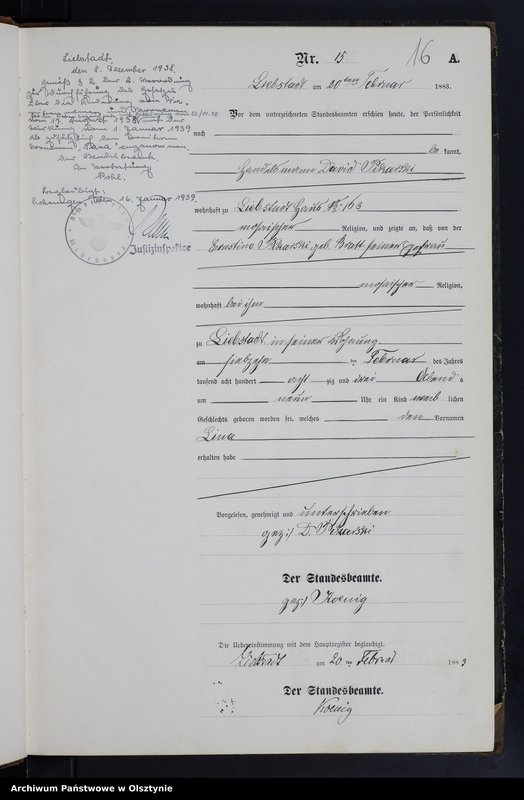 Liebstadt,
den 8. Dezember 1938.
gemäß § 2 der 2. Verordnung
zur Durchführung des Gesetzes
über die Änderung von
vom 17. August 1938 mit der
Wirkung vom 1. Januar 1939
ab zusätzlich den
Vornamen "Sara" angenommen.
Der Standesbeamte.
In Vertretung
Pohl.
Mohrungen, den 16. Januar 1939.
Justizinspektor
Nr. 15
16
A.
Liebstadt am 20 ten Februar 1883.
Vor dem unterzeichneten Standesbeamten erschien heute, der Persönlichkeit
nach
be kannt,
Handelsmann David
wohnhaft zu Liebstadt Haus № 163
mosaischer Religion, und zeigte an, daß von der
Ernstine geb. Bratt seiner Ehefrau
mosaischer Religion,
wohnhaft bei ihm
zu Liebstadt in seiner Wohnung
am siebzehn ten Februar des Jahres
tausend acht hundert acht zig und drei Abend s
um neun Uhr ein Kind weib lichen
Geschlechts geboren worden sei, welches den Vornamen
Lina
erhalten habe
Vorgelesen, genehmigt und unterschrieben
gez:) D.
Der Standesbeamte.
gez:) Koenig
Die Uebereinstimmung mit dem Hauptregister beglaubigt.
Liebstadt am 20 ten Februar 188 3
Der Standesbeamte.
Koenig
Archiwum Państwowe w Olsztynie